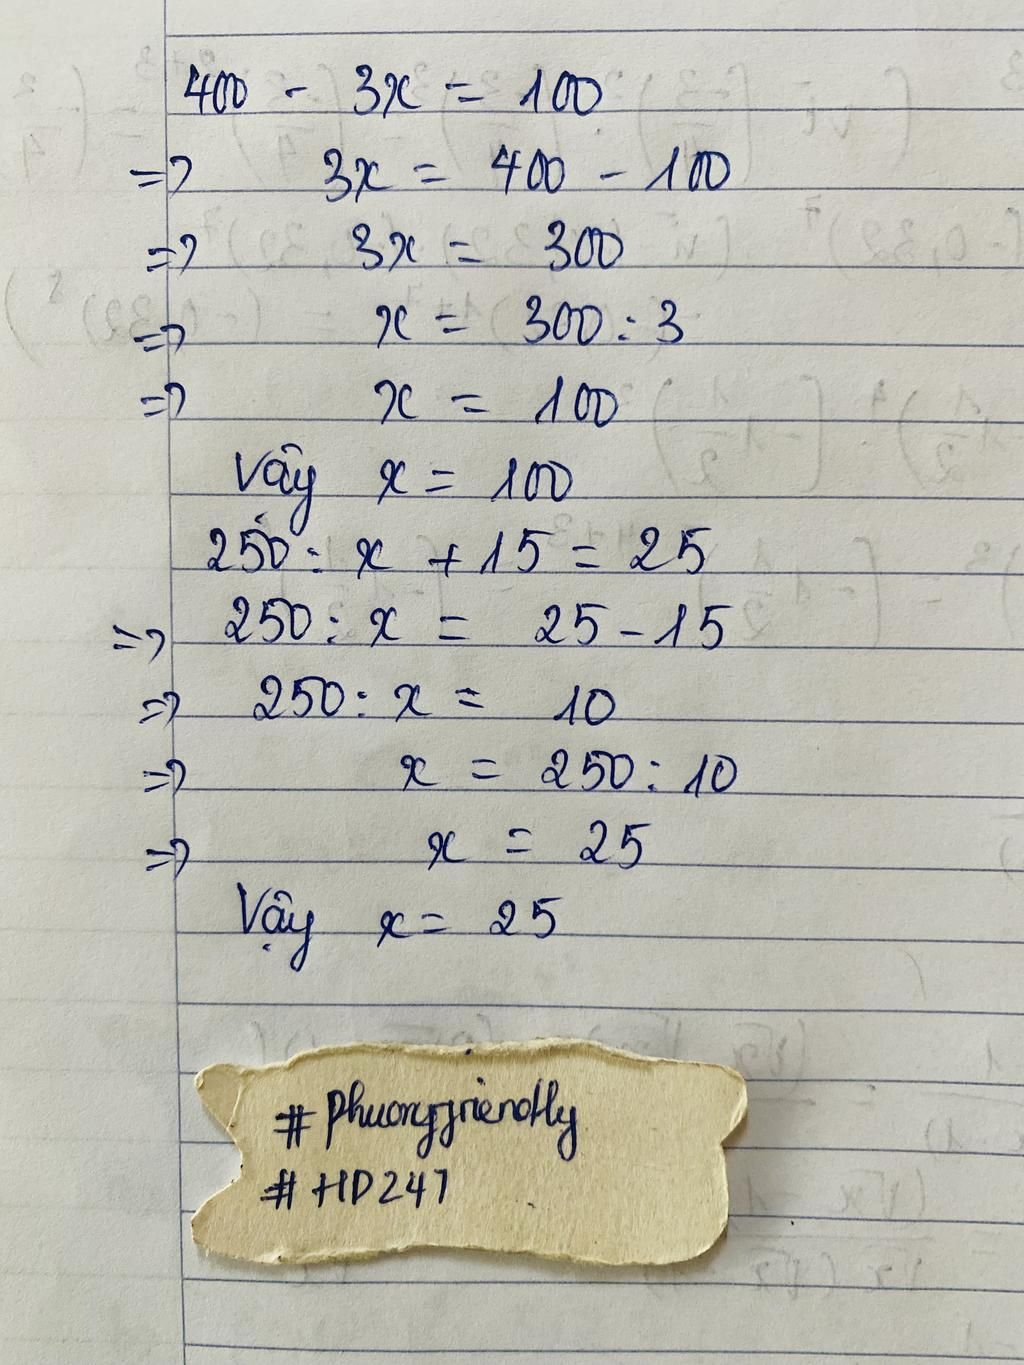 400 - 3x = 100
=> 3x = 400 - 100
=> 3x = 300
=> x = 300 : 3
=> x = 100
Vậy x = 100
250 : x + 15 = 25
=> 250 : x = 25 - 15
=> 250 : x = 10
=> x = 250 : 10
=> x = 25
Vậy x = 25
# phuongfriendly
# HD247